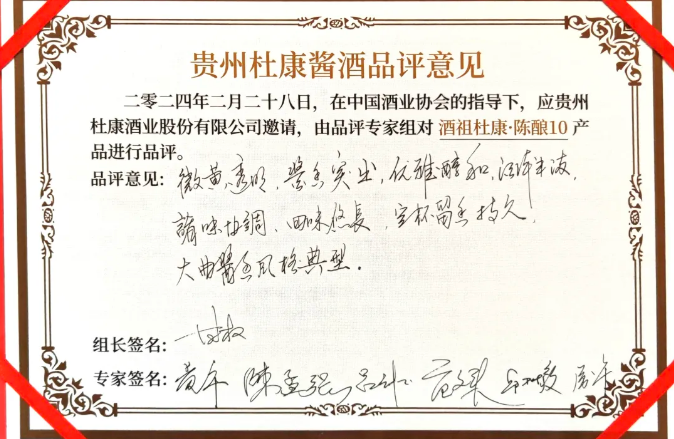 贵州杜康酱酒品评意见
二零二四年二月二十八日，在中国酒业协会的指导下，应贵州
杜康酒业股份有限公司邀请，由品评专家组对 酒祖杜康·陈酿10 产
品进行品评。
品评意见：微黄透明，酱香突出，优雅醇和，
諸味协調，回味悠長，空杯留香持久，
大曲酱香风格典型。
组长签名：
专家签名：